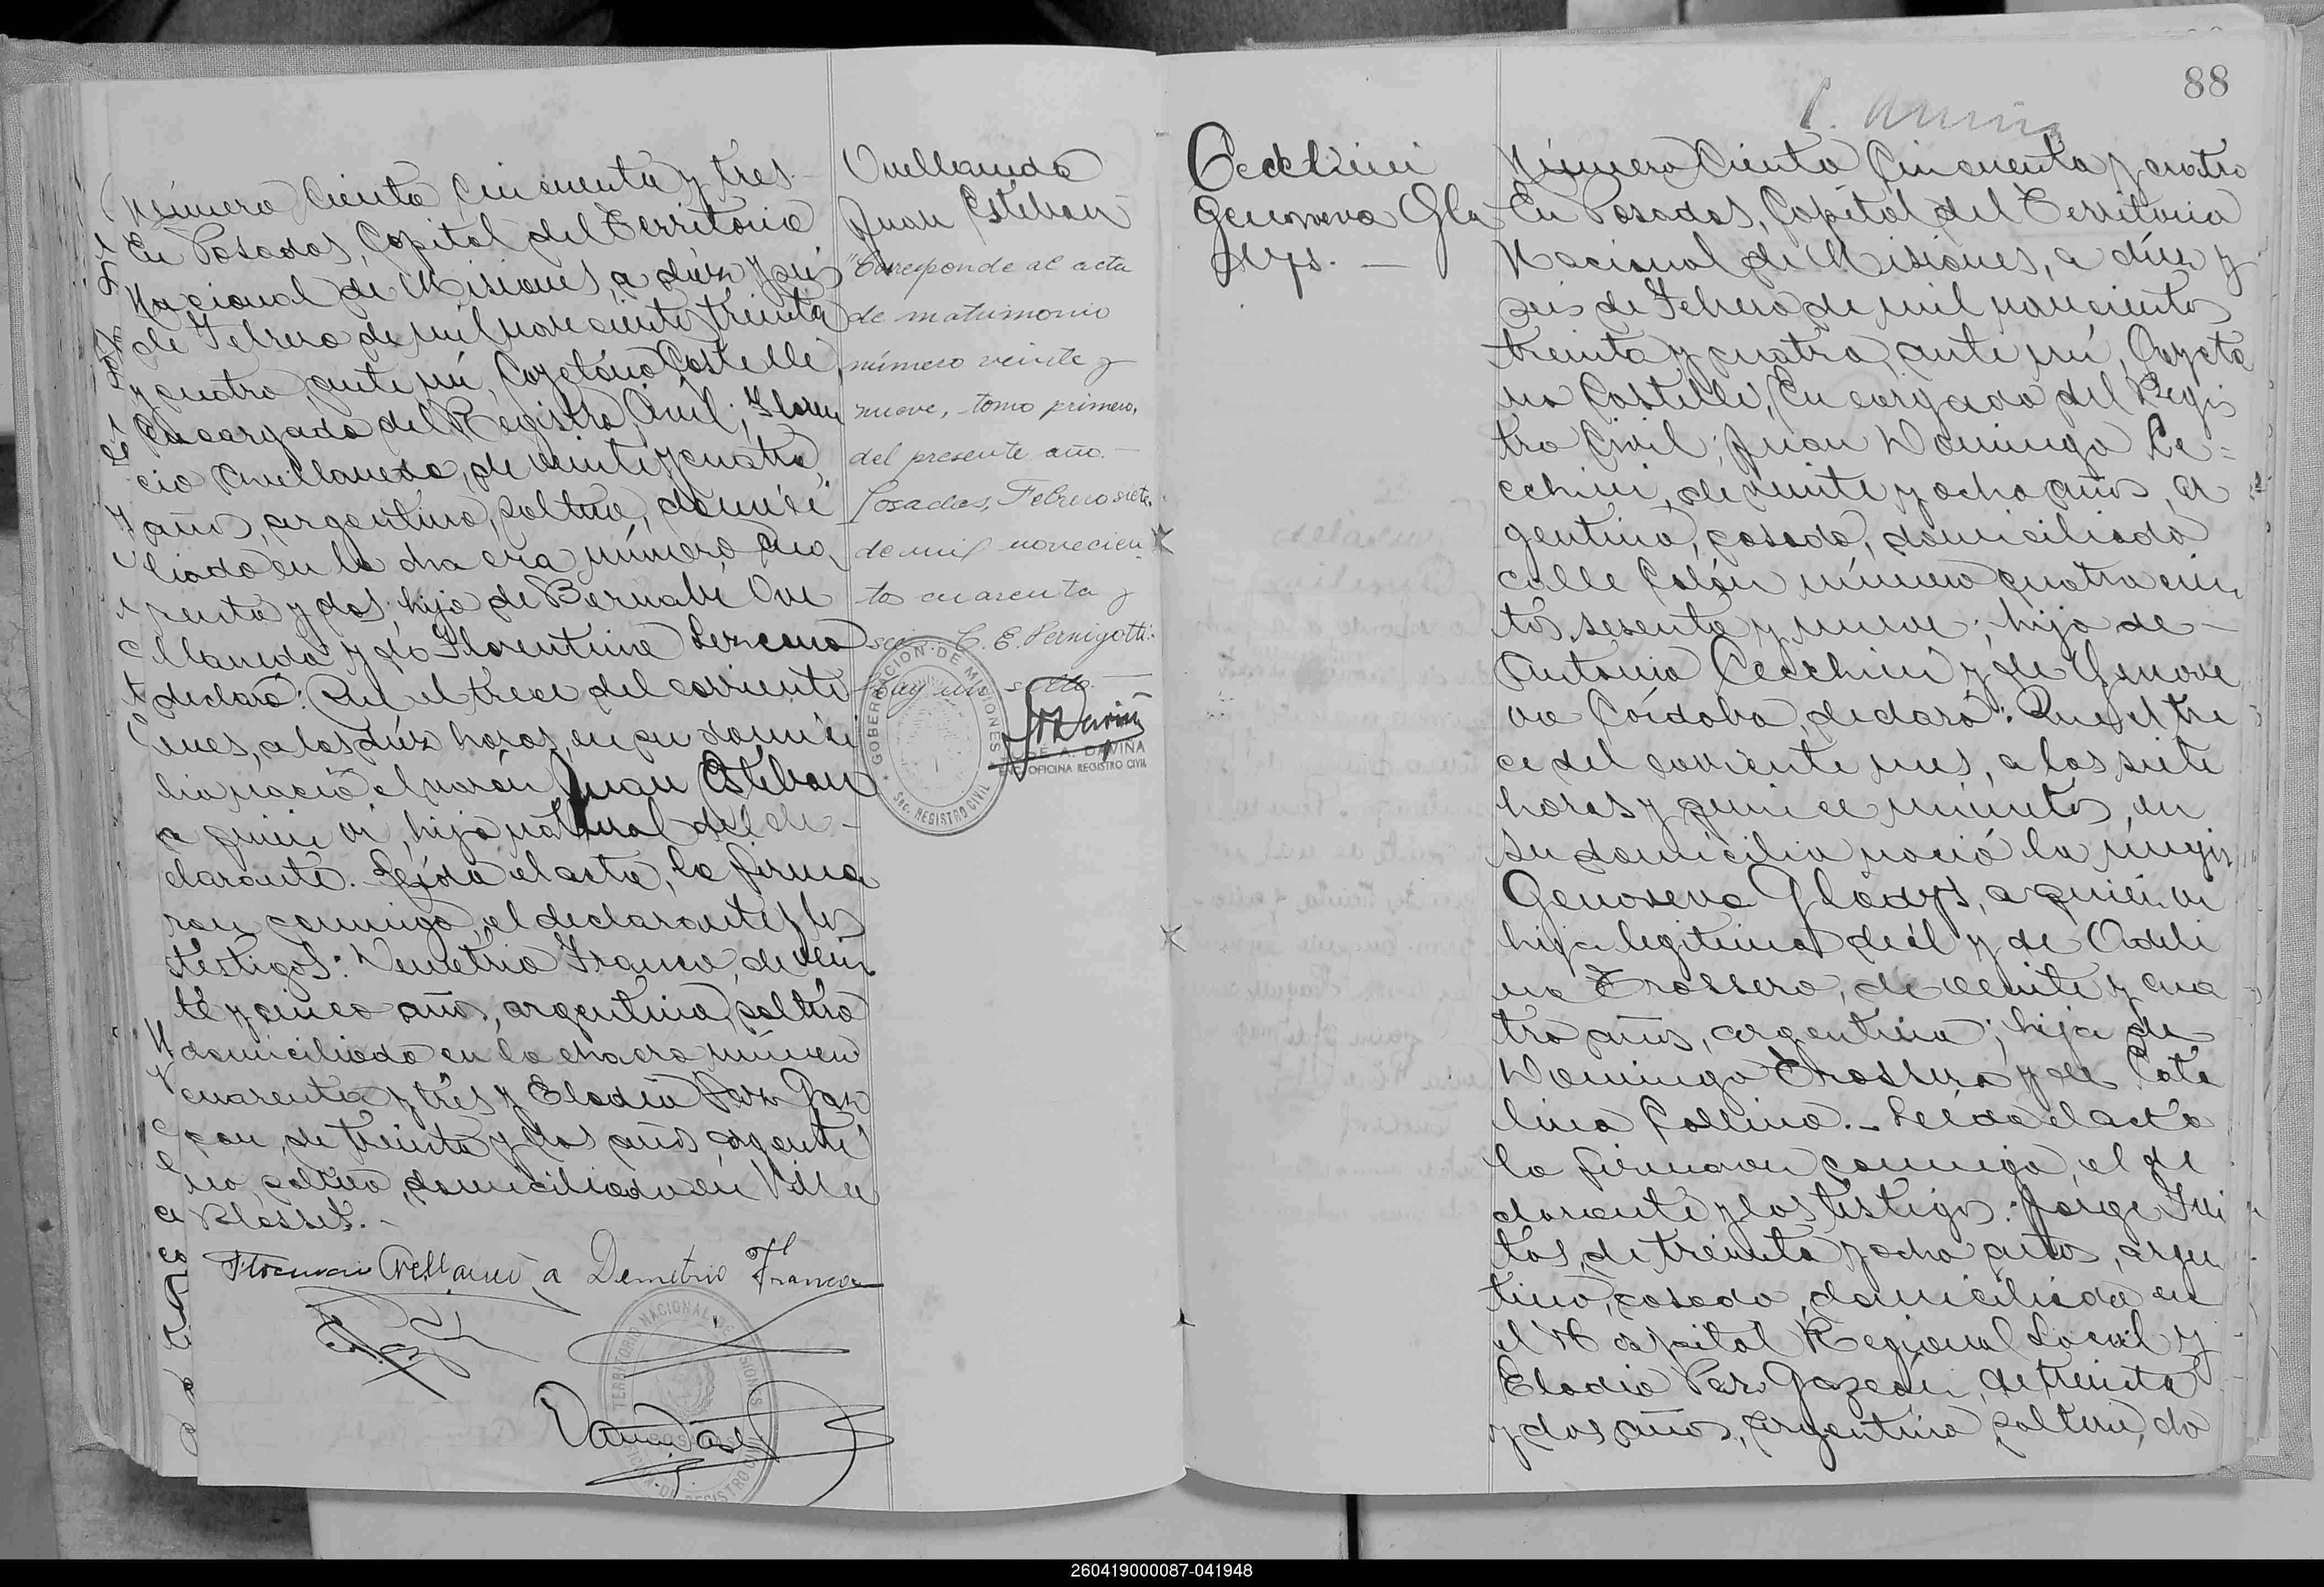 Número Ciento Cincuenta y tres
En Posadas, Capital del Territorio
Nacional de Misiones, a diez y seis
de Febrero de mil novecientos treinta
y cuatro, ante mí, Cayetano Castelli
Encargado del Registro Civil; Floren
cio Avellaneda, de veinte y cuatro
años, argentino, soltero, domici
liado en la chacra número cua
renta y dos; hijo de Bernabé Ave
llaneda y de Florentina Lezcano
declaró: Que el trece del corriente
mes, a las diez horas, en su domici
lio nació el varón Juan Esteban
a quien vi, hijo natural del de-
clarante. Leída el acta, la firma
ron conmigo, el declarante y los
testigos: Demetrio Franco, de vein
te y cinco años, argentino, soltero
domiciliado en la chacra número
cuarenta y tres y Eladio Paz Gaz
pan, de treinta y dos años, argenti
no, soltero, domiciliado en Villa
Blosset.-
Avellaneda Demetrio Franco
TERRITORIO NACIONAL DE MISIONES
Avellaneda
Juan Esteban
"Corresponde al acta
de matrimonio
número veinte y
nueve, tomo primero,
del presente año.-
Posadas, Febrero siete
de mil novecien
tos cuarenta y
seis. C. E. Pernigotti.
Hay un sello.-
GOBERNACION DE MISIONES
SEC. REGISTRO CIVIL
DE A. DAVIÑA
ENC. OFICINA REGISTRO CIVIL
88
Cecchini
Genoveva Gla
dys. -
Número Ciento Cincuenta y cuatro
En Posadas, Capital del Territorio
Nacional de Misiones, a diez y
seis de Febrero de mil novecientos
treinta y cuatro, ante mí, Cayeta
no Castelli, Encargado del Regis
tro Civil; Juan Domingo Ce=
cchini, de veinte y ocho años, ar
gentino, casado, domiciliado
calle Colón número cuatrocien
tos sesenta y nueve; hijo de -
Antonio Cecchini y de Genove
va Córdoba, declaró: Que el tre
ce del corriente mes, a las siete
horas y quince minutos, en
su domicilio nació la mujer
Genoveva Gladys, a quien vi
hija legítima de él y de Adeli
na Trossero, de veinte y cua
tro años, argentina; hija de
Domingo Trossero y de Cata
lina Collino.- Leída el acta
la firmaron conmigo, el de
clarante y los testigos: Jorge
tos, de treinta y ocho años, argen
tino, casado, domiciliado en
el Hospital Regional Local y
Eladio Paz Gazpan, de treinta
y dos años, argentino, soltero, do
260419000087-041948